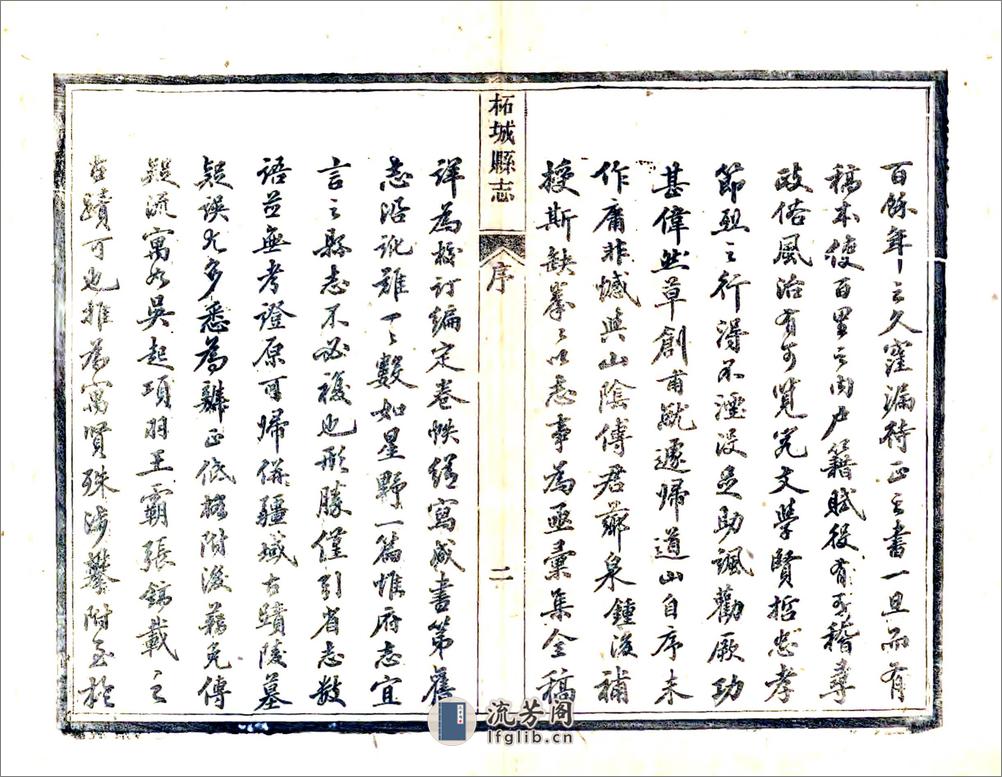 百餘年之久窪漏待正之書一旦而有
稿本使百里之內戶籍賦役有可稽尋
政俗風治有可覽究文學賢哲忠孝
節烈之行得不湮沒足助諷勸厥功
甚偉然草創甫就遽歸道山自序未
作庸非憾與山陰傅君薌泉鍾浚補
授斯缺拳之以志事為亟彙集全稿
柘城縣志
序
二
詳為校訂編定卷帙繕寫成書第舊
志沿訛難一之數如星野一篇惟府志宜
言之縣志不必複也形勝僅引省志數
語並無考證原可歸併疆域古蹟陵墓
疑誤尤多悉為辨正低格附後藉免傳
疑流寓如吳起項羽王霸張鎬載之
古蹟可也推為寓賢殊涉攀附至於
流芳阁
lfglib.cn